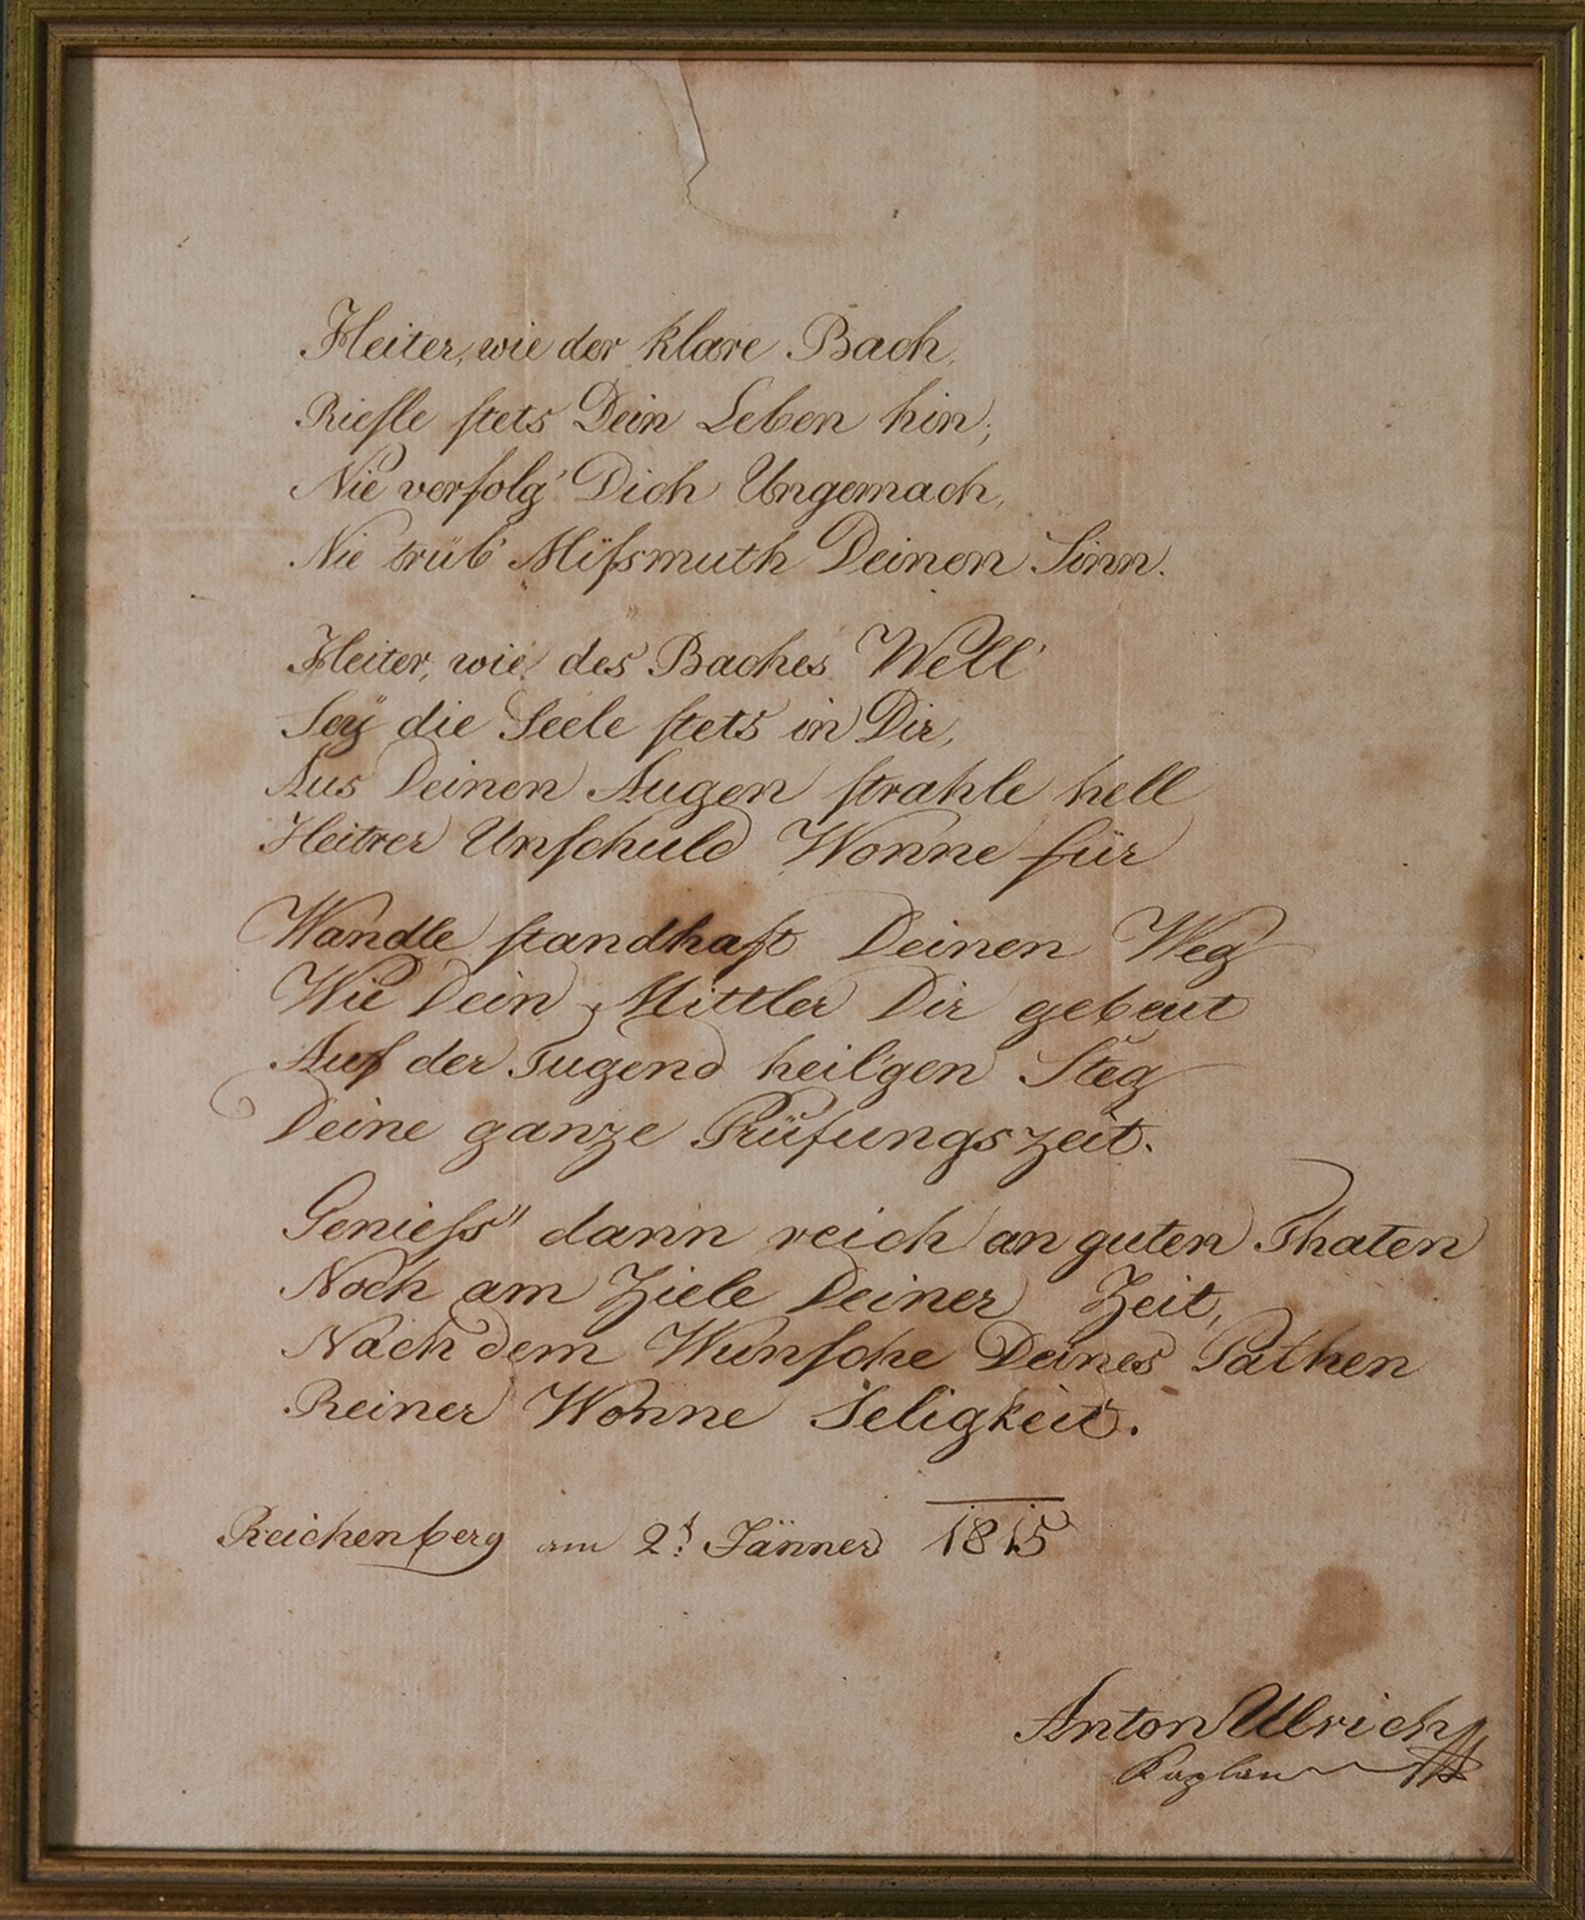 Heiter, wie der klare Bach,
Rieſle ſtets Dein Leben hin;
Nie verfolg' Dich Ungemach,
Nie trüb' Miſsmuth Deinen Sinn.
Heiter, wie des Baches Well'
Seÿ die Seele ſtets in Dir,
Aus Deinen Augen ſtrahle hell
Heitrer Unſchuld Wonne für
Wandle ſtandhaft Deinen Weg
Wie Dein Mittler Dir gebeut
Auf der Tugend heil'gen Steg
Deine ganze Prüfungszeit.
Genieſs" dann reich an guten Thaten
Noch am Ziele Deiner Zeit,
Nach dem Wunſche Deines Pathen
Reiner Wonne Seligkeit.
Reichenberg am 2t. Jänner 1815
Anton Ulrich